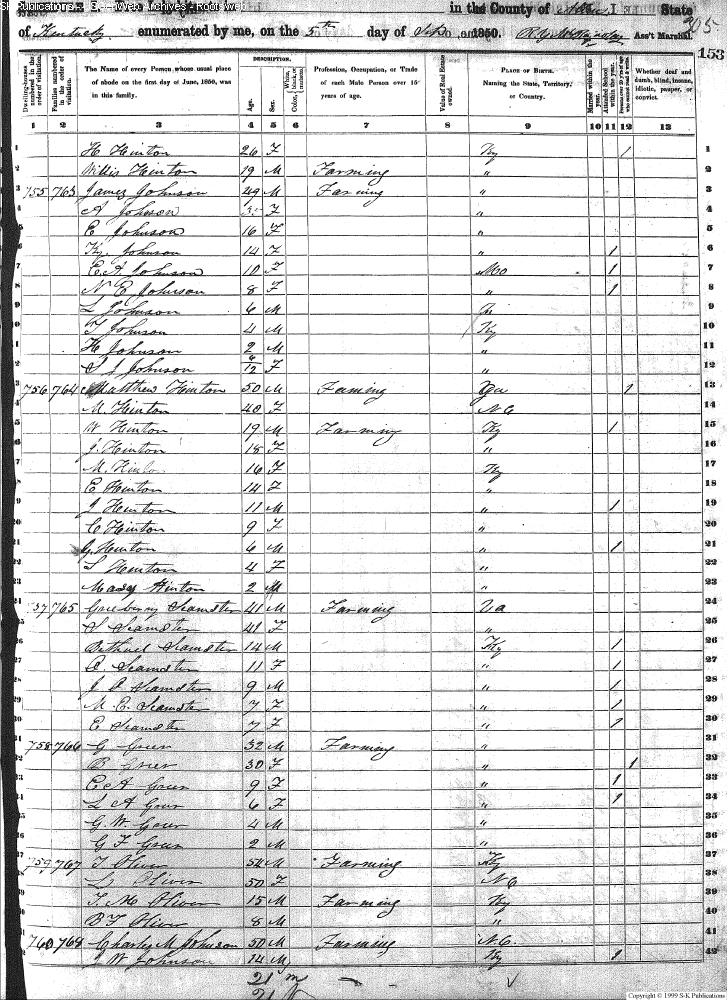 in the County of State
of Kentucky enumerated by me, on the 5th day of 1850. Ass't Marshal.
153
DESCRIPTION.
Dwelling-houses numbered in the order of visitation.
Families numbered in the order of visitation.
The Name of every Person whose usual place of abode on the first day of June, 1850, was in this family.
Age.
Sex.
Color
White, black, or mulatto.
Profession, Occupation, or Trade of each Male Person over 15 years of age.
Value of Real Estate owned.
PLACE OF BIRTH. Naming the State, Territory, or Country.
Married within the year.
Attended School within the year.
Persons over 20 y'rs of age who cannot read & write.
Whether deaf and dumb, blind, insane, idiotic, pauper, or convict.
1 2 3 4 5 6 7 8 9 10 11 12 13
1 H Hinton 26 F Ky 1 1
2 Willis Hinton 19 M Farming " 2
3 755 763 James Johnson 49 M Farming " 3
4 A Johnson F " 4
5 E Johnson 16 F " 5
6 Ky. Johnson 14 F " 1 6
7 E. A. Johnson 10 F Mo 1 7
8 N. E Johnson 8 F " 1 8
9 L Johnson 6 M 9
10 T Johnson 4 M Ky 10
11 H Johnson 2 M " 11
12 S J Johnson 6/12 F " 12
756 764 Matthew Hinton 50 M Faming 1 13
M. Hinton 40 F N C 14
W Hinton 19 M Farming Ky 1 15
J. Hinton 18 F " 16
M. 16 F Ky 17
E Hinton 14 F " 18
J Hinton 11 M " 1 19
C Hinton 9 F " 20
G. Hinton 6 M " 1 21
S Hinton 4 F " 22
Hinton 2 M " 23
757 765 Greeberry Seamster 41 M Farming Va 24
S Seamster 41 F " 25
Bethuel Seamster 14 M Ky 1 26
Seamster 11 F " 1 27
Seamster 9 M " 1 28
M. C. Seamster 7 F " 1 29
E Seamster 7 F " 1 30
758 766 G Greer 32 M Farming " 31
B Greer 30 F " 1 32
E A Greer 9 F " 1 33
L A Greer 6 F " 1 34
G. W Greer 4 M " 35
G F Greer 2 M " 36
759 767 T Oliver 54 M Farming Ky 37
Oliver 50 F N C 38
T. M Oliver 15 M Farming Ky 39
B F Oliver 8 M " 40
760 768 Charles M Johnson 50 M Farming N. C. 41
J W Johnson 14 M Ky 1 42
21 m
21
Copyright © 1999 S-K Publications